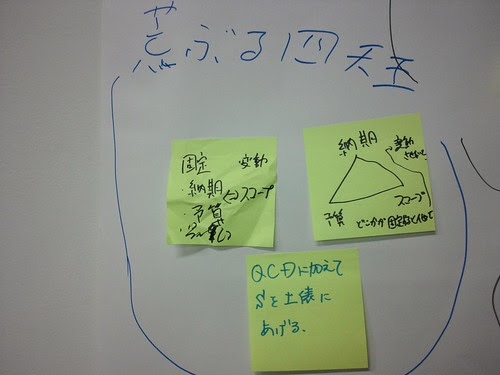 荒ぶる四天王
固定 変動
・納期
・予算
スコープ
納期
変動
予算
スコープ
どこかが固定
QCDに加えて
Sを土俵に
あげる.